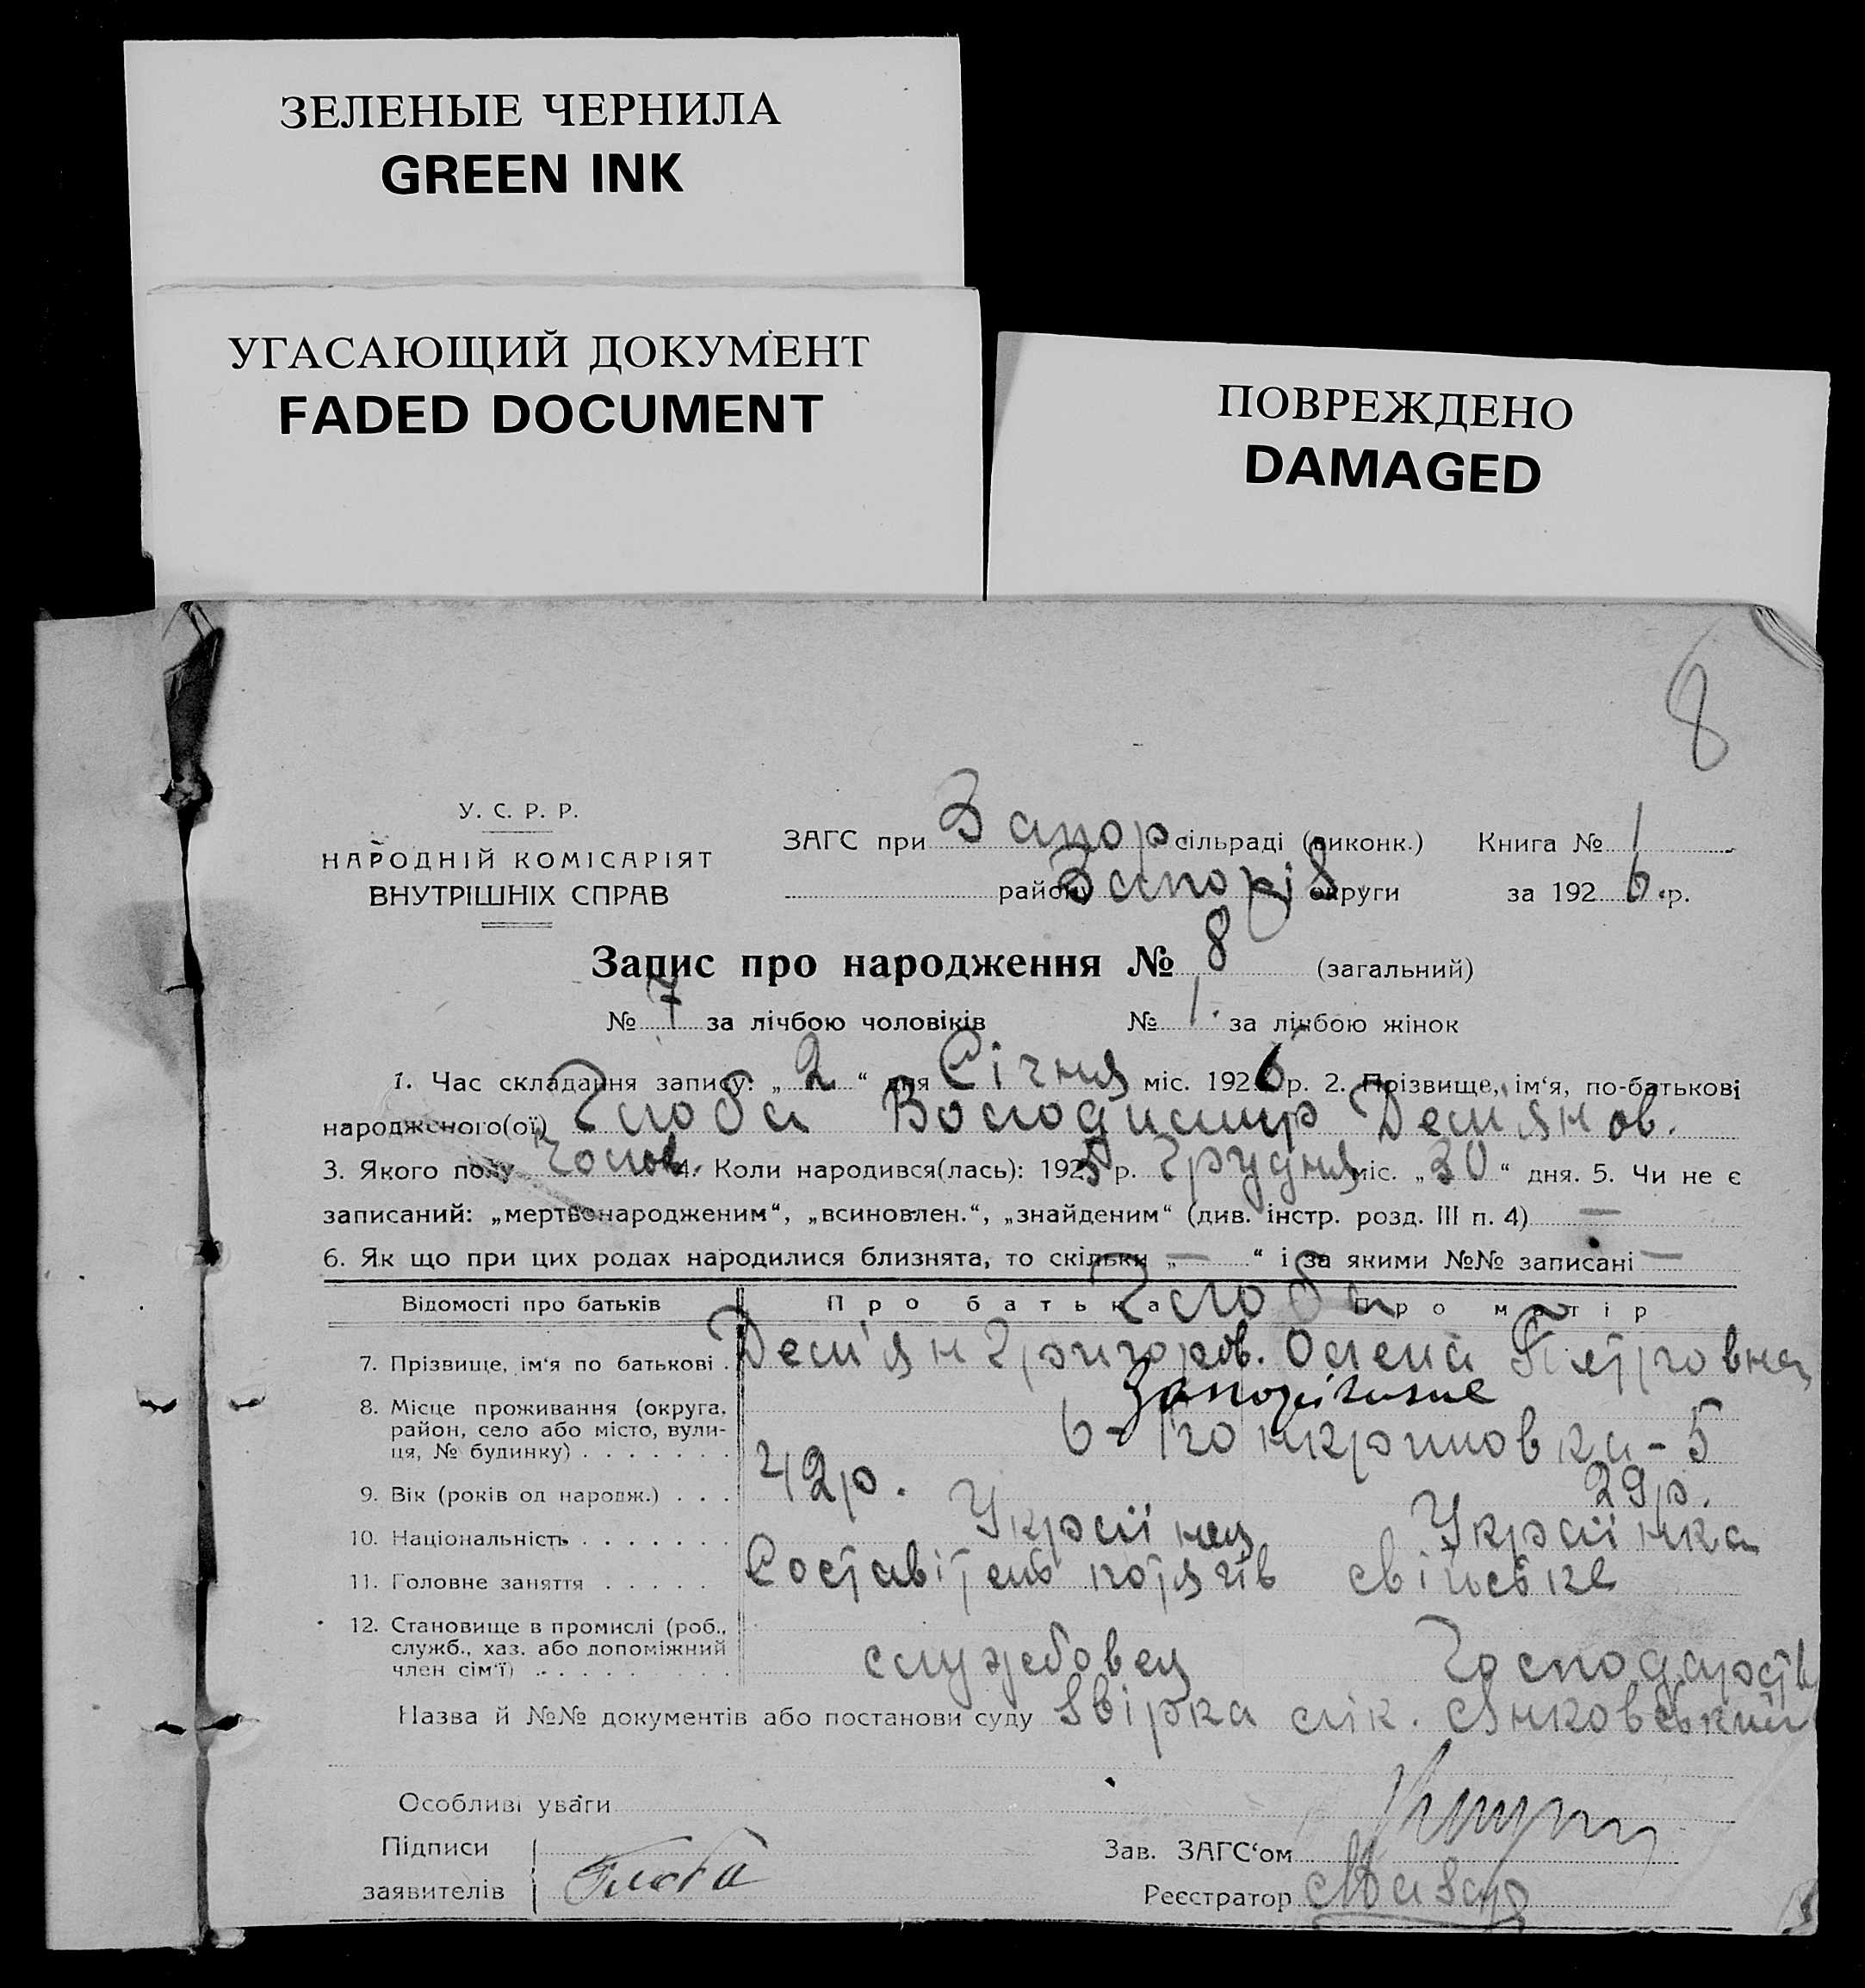 ЗЕЛЕНЫЕ ЧЕРНИЛА
GREEN INK
УГАСАЮЩИЙ ДОКУМЕНТ
FADED DOCUMENT
ПОВРЕЖДЕНО
DAMAGED
8
У. С. Р. Р.
НАРОДНІЙ КОМІСАРІЯТ
ВНУТРІШНІХ СПРАВ
ЗАГС при Запор сільраді (виконк.) Книга № 1
району Запорі округи за 1926 р.
Запис про народження № 8 (загальний)
№ 7 за лічбою чоловіків № 1. за лічбою жінок
1. Час складання запису: „2“ дня Січня міс. 1926 р. 2. Прізвище, ім‘я, по-батькові
народженого(ої) Глоба Володимир Дем'янов.
3. Якого полу Чолов. 4. Коли народився(лась): 1925 р. Грудня міс. „30“ дня. 5. Чи не є
записаний: „мертвонародженим“, „всиновлен.“, „знайденим“ (див. інстр. розд. III п. 4) —
6. Як що при цих родах народилися близнята, то скільки „—“ і за якими №№ записані —
Відомості про батьків Про батька Про матір
Глоба
7. Прізвище, ім‘я по батькові . Дем'ян Григоров. Олена Петровна
8. Місце проживання (округа, район, село або місто, вулиця, № будинку) . . . . . . . Запоріжжя
9. Вік (років од народж.) . . . 42 р. 29 р.
10. Національність . . . . . . . Українец Українка
11. Головне заняття . . . . . Составітель потягів свійське
12. Становище в промислі (роб., служб., хаз. або допоміжний член сім‘ї) . . . . . службовец Господарств
Назва й №№ документів або постанови суду Звірка лік. Янковський
Особливі уваги
Підписи
заявителів Глоба
Зав. ЗАГС‘ом
Реєстратор